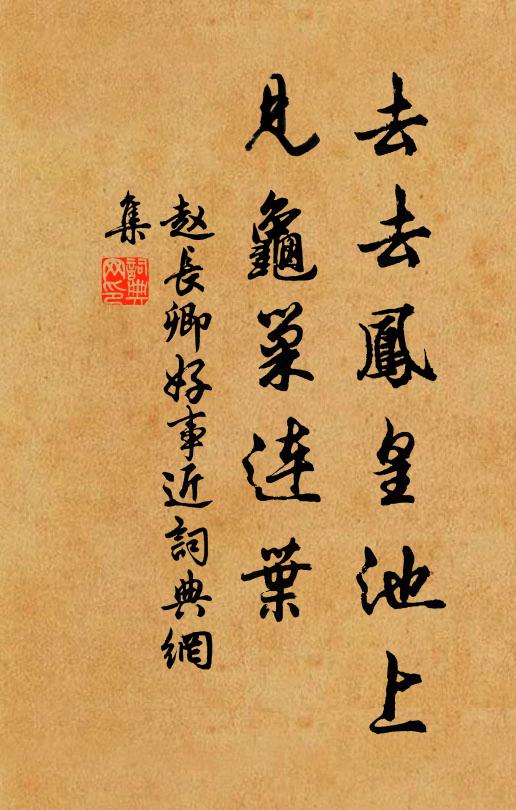 去去鳳皇池上
見龜巢連葉
赵長卿好事近詞典網
集
詞典
网印